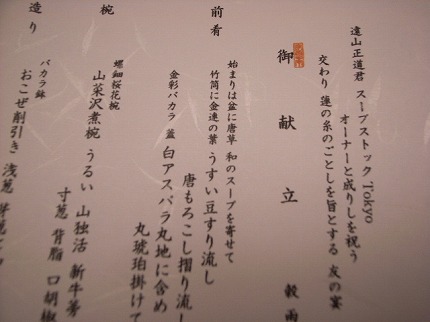 遠山正道君 スープストック Tokyo
オーナーと成りしを祝う
交わり 蓮の糸のごとしを旨とする 友の宴
御献立 穀雨
前肴
始まりは盆に唐草 和のスープを寄せて
竹筒に金蓮の葉 うすい豆すり流し
唐もろこし摺り流し
金彩バカラ 蓋 白アスパラ丸地に含め
丸琥珀掛けて
椀
螺鈿桜花椀
山菜沢煮椀 うるい 山独活 新牛蒡
寸葱 背脂 口胡椒
造り
バカラ鉢
おこぜ削引き 浅葱